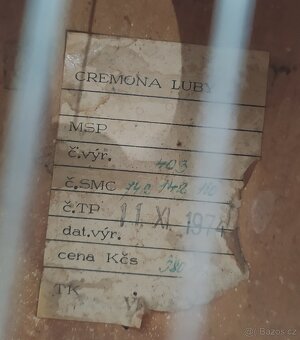 CREMONA LUBY
MSP
č.výr. 403
č.SMC
č.TP 11 XI 1974
dat.výr.
cena Kčs 380
TK
Bazos.cz